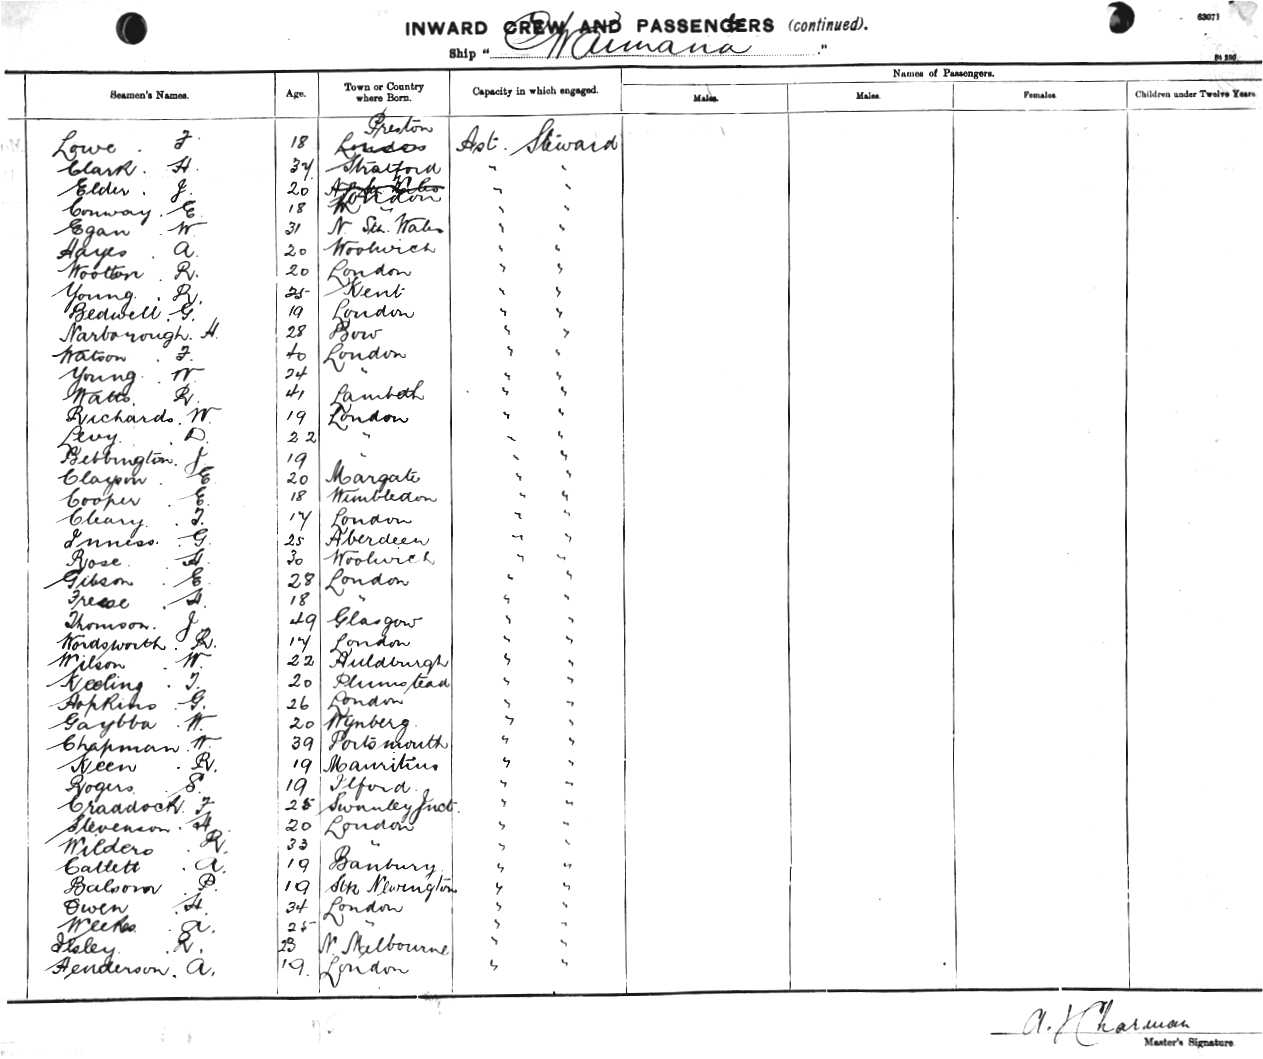 INWARD CREW AND PASSENGERS (continued).
63071
Ship "Waimana."
Seamen's Names. Age. Town or Country where Born. Capacity in which engaged. Names of Passengers.
Males. Males. Females. Children under Twelve Years.
Preston
Lowe . F. 18 London Ast. Steward
Clark . H. 34 Stratford " "
Elder . J. 20 London " "
Conway . E. 18 " " "
Egan W 31 N Sth. Wales " "
Hayes . A. 20 Woolwich " "
Wootton . R. 20 London " "
Young . R. 25 Kent " "
Bedwell . G. 19 London " "
Narborough. H. 28 Bow " "
Watson . F. 40 London " "
Young . W 24 " " "
Watts. R. 41 Lambeth " "
Richards. W. 19 London " "
Levy. . D. 22 " " "
Bebbington. J 19 " " "
Clayson . E. 20 Margate " "
Cooper . E. 18 Wimbledon " "
Cleary. . T. 17 London " "
Inness. . G. 25 Aberdeen " "
Rose. . H. 30 Woolwich " "
Gibson . E. 28 London " "
Freese . H. 18 " " "
Thomson. J 49 Glasgow " "
Wordsworth. R. 17 London " "
Wilson . W. 22 Auldburgh " "
Keeling . T. 20 Plumstead " "
Hopkins . G. 26 London " "
Gaybba . W. 20 Wynberg. " "
Chapman. W. 39 Portsmouth " "
Keen . R. 19 Mauritius " "
Rogers . S. 19 Ilford. " "
Craddock. F 25 Swanley Junct. " "
Stevenson. H. 20 London " "
Wilders . R. 33 " " "
Catlett . A. 19 Banbury. " "
Balsom . P. 19 Stk Newington " "
Owen . H. 34 London " "
Weeks . A. 25 " " "
Ilsley. . R. 23 N. Melbourne " "
Henderson. A. 19. London " "
A. J Charman
Master's Signature